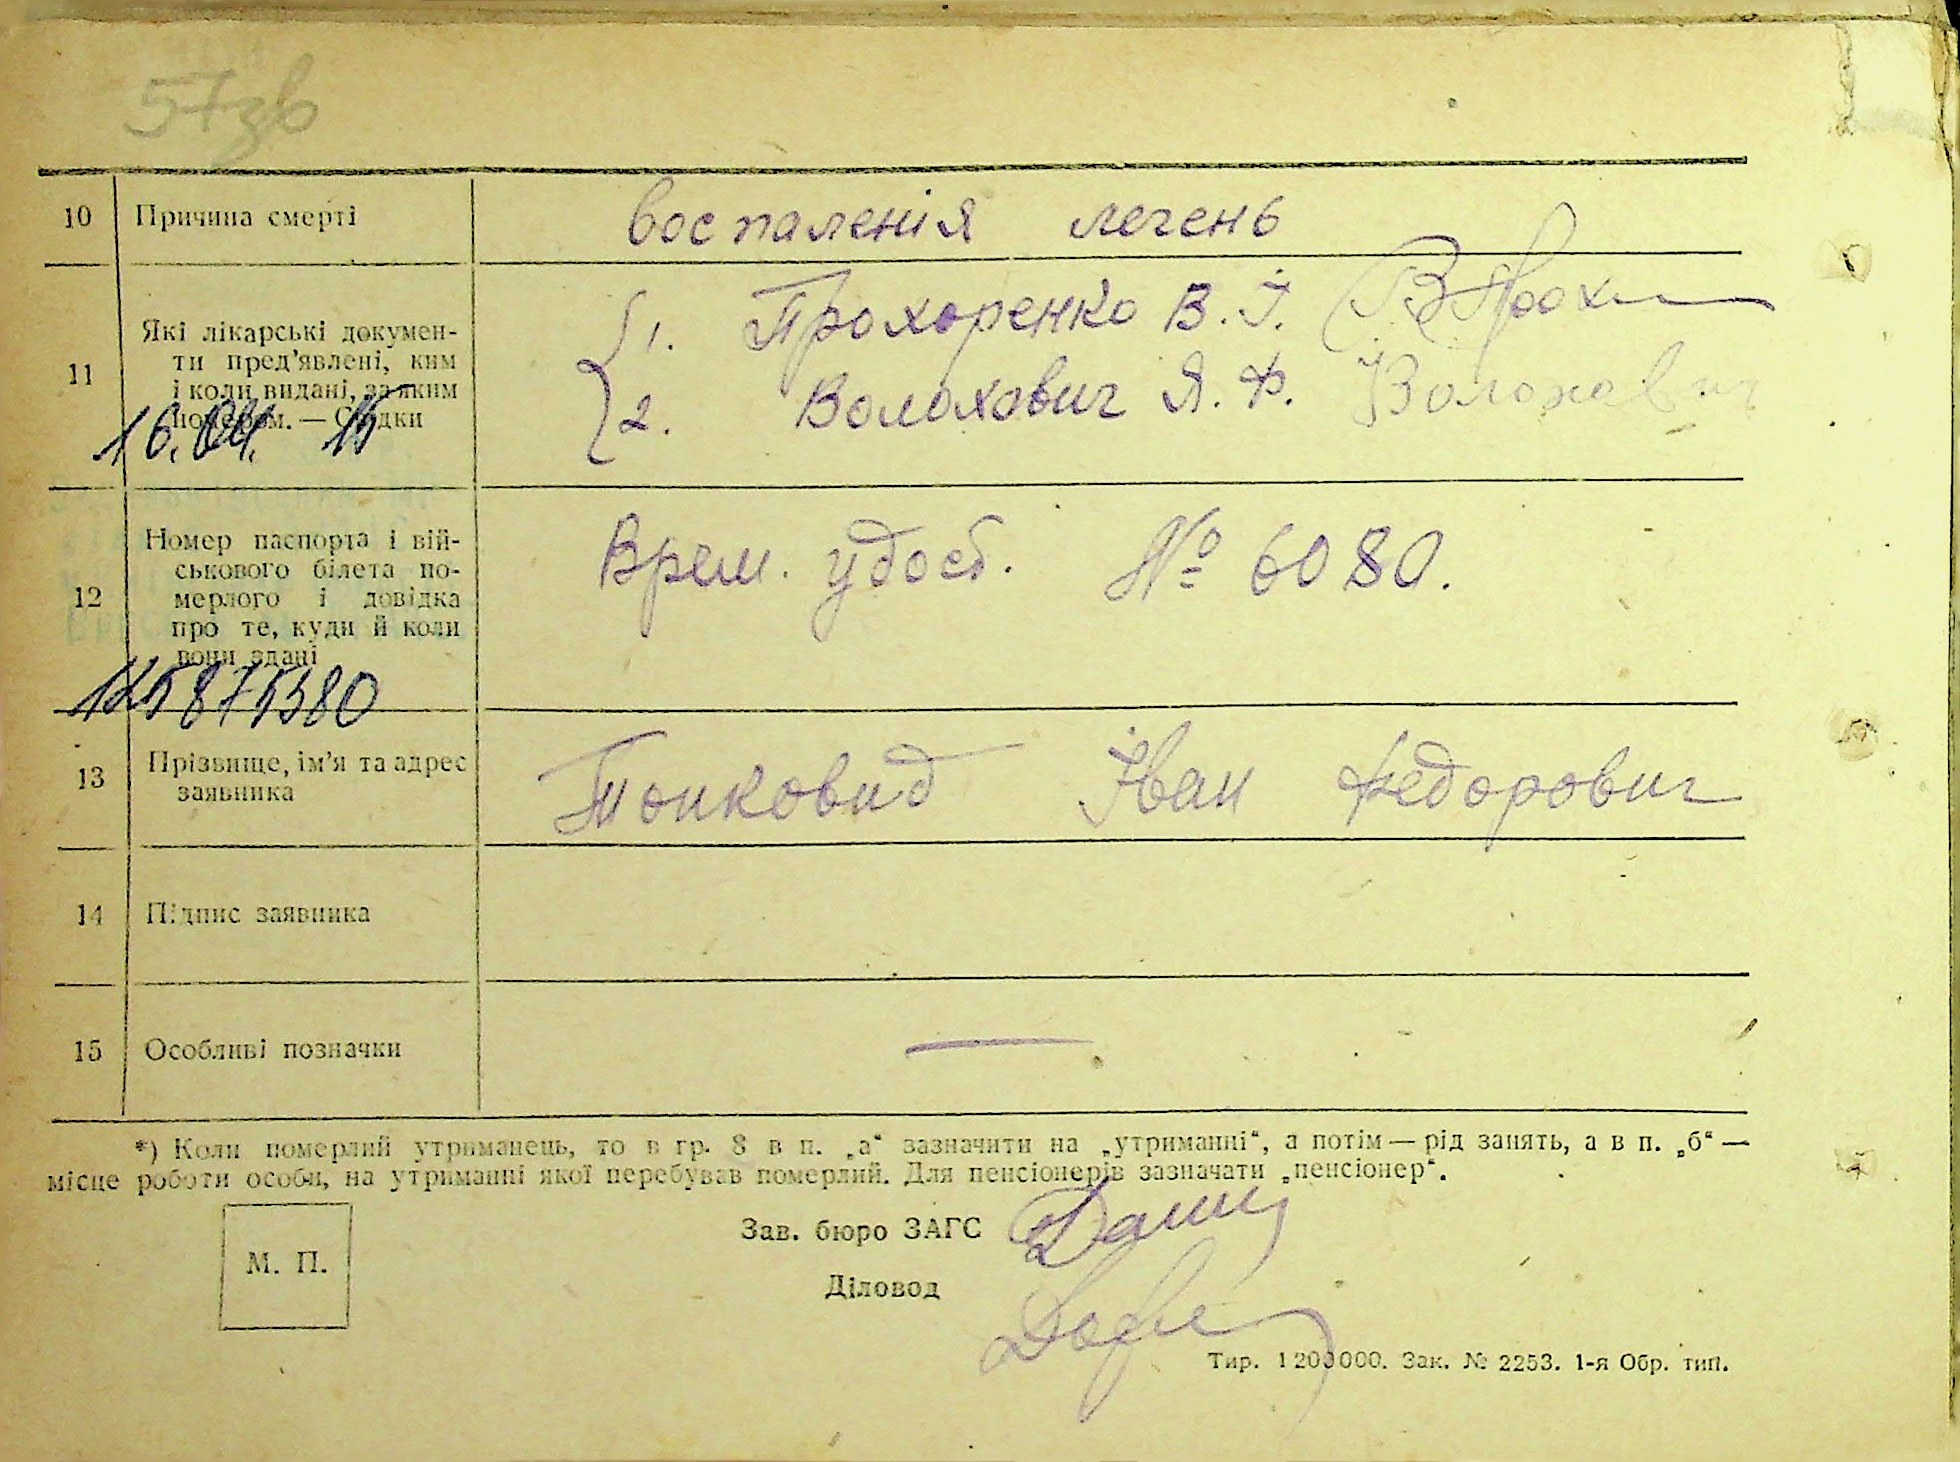 57зв
10 Причина смерті воспаленія легень
11 Які лікарські докумен-
ти пред'явлені, ким
і коли видані, за яким
номером. — Свідки
1. Прохоренко В. І. ВПрох
2. Волохович Я. Ф. Волохович
16. 04. 15
12 Номер паспорта і вій-
ськового білета по-
мерлого і довідка
про те, куди й коли
вони здані
Врем. удост. № 6080.
13 Прізвище, ім'я та адрес
заявника
Тонковид Іван Федорович
14 Підпис заявника
15 Особливі позначки —
*) Коли померлий утриманець, то в гр. 8 в п. „а“ зазначити на „утриманні“, а потім — рід занять, а в п. „б“ —
місце роботи особи, на утриманні якої перебував померлий. Для пенсіонерів зазначати „пенсіонер“.
М. П.
Зав. бюро ЗАГС
Діловод
Тир. 1200000. Зак. № 2253. 1-я Обр. тип.